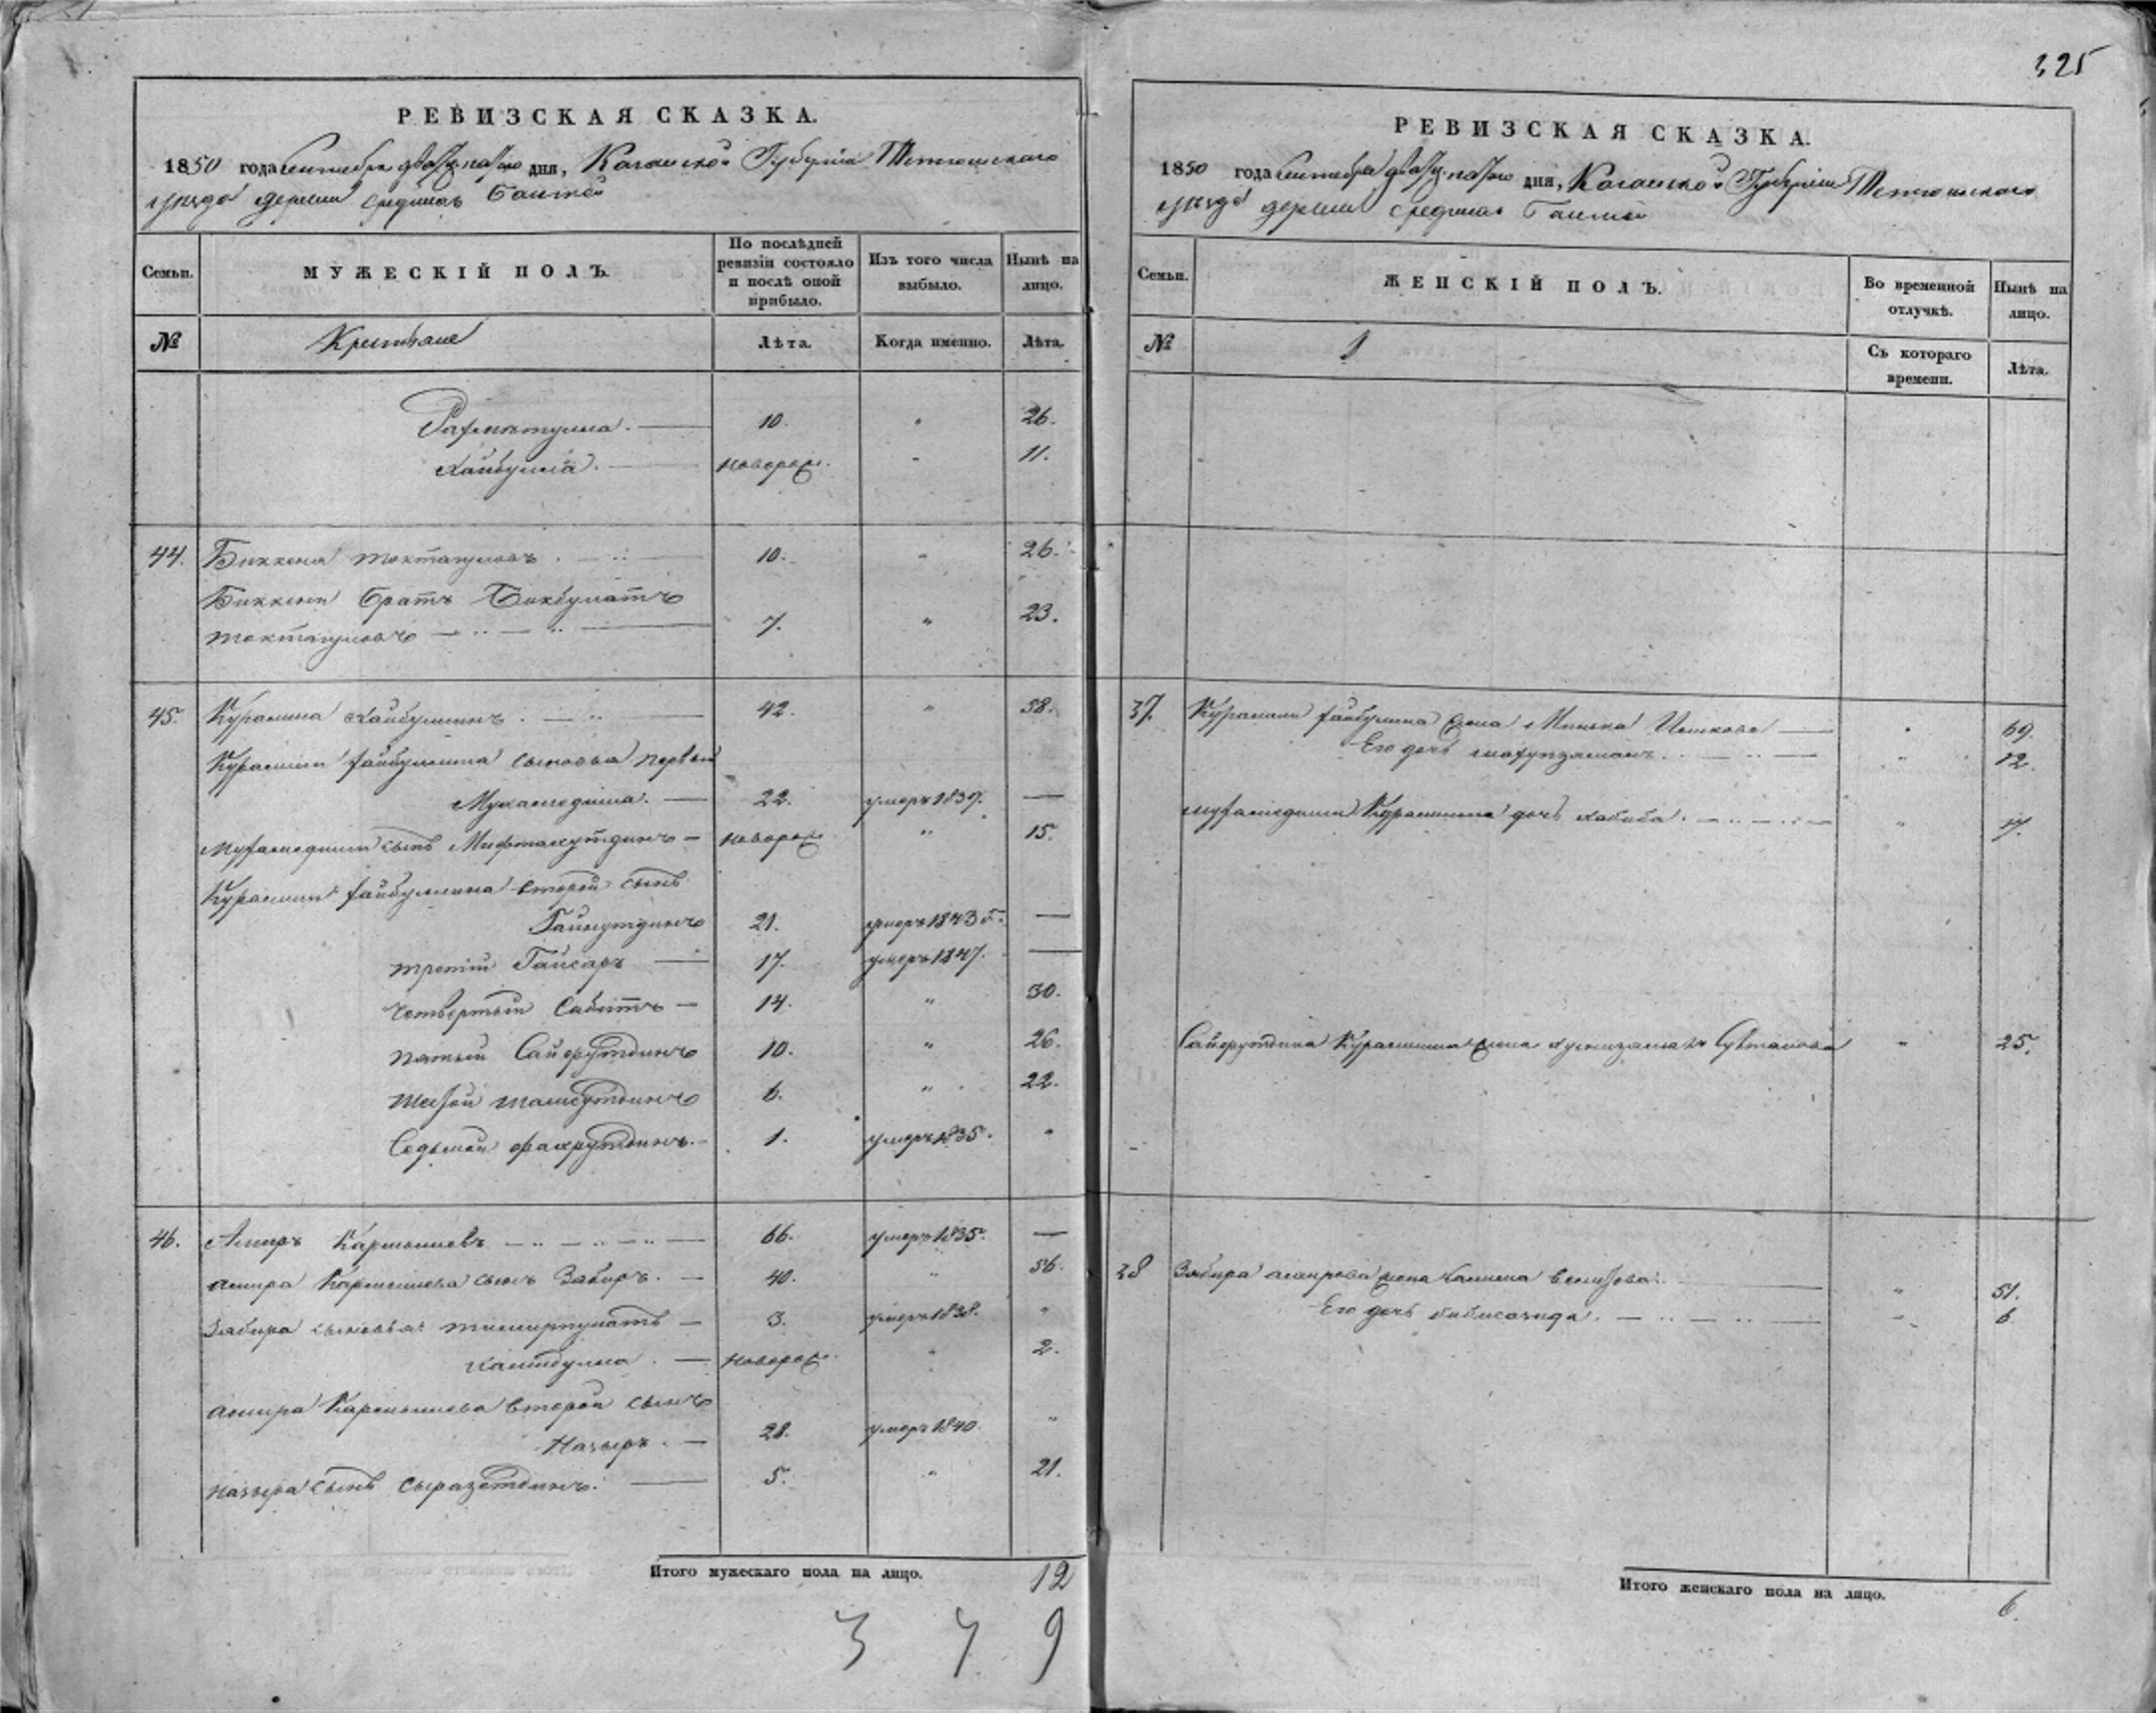 325
РЕВИЗСКАЯ СКАЗКА.
1850 года Сентября двадцатого дня, Казанской Губернии Тетюшского
уезда деревни средних Балтай
Семьи.
МУЖЕСКІЙ ПОЛЪ.
По послѣдней ревизіи состояло и послѣ оной прибыло.
Изъ того числа выбыло.
Нынѣ на лицо.
№
Крестьяне
Лѣта.
Когда именно.
Лѣта.
Рахметулла. 10. " 26.
Хайбулла. новорож. " 11.
44. Биккеня Токтагуловъ 10. " 26.
Биккени братъ Бикбулатъ
Токтагуловъ 7. " 23.
45. Курамша Хайбуллинъ 42. " 58.
Курамши Хайбуллина сыновья первый
Мухамедша. 22. умеръ 1837. —
Мухамедши сынъ Мифтахутдинъ новорож. " 15.
Курамши Хайбуллина второй сынъ
Гайнутдинъ 21. умеръ 1843 г. —
третій Гайсаръ 17. умеръ 1847. —
четвертый Сабитъ 14. " 30.
пятый Сайфутдинъ 10. " 26.
шестой Шамсутдинъ 6. " 22.
Седьмой Фахрутдинъ. 1. умеръ 1835. "
46. Амиръ Кармышевъ 66. умеръ 1835. —
Амира Кармышева сынъ Забиръ. 40. " 56.
Забира сыновья Тимирпулатъ 3. умеръ 1838. "
новорож. " 2.
Амира Кармышева второй сынъ
Назыръ. 28. умеръ 1840. "
Назыра сынъ Сыразетдинъ. 5. " 21.
Итого мужескаго пола на лицо. 12
3 4 9
РЕВИЗСКАЯ СКАЗКА.
1850 года Сентября двадцатого дня, Казанской Губернии Тетюшского
уезда деревни средних Балтай
Семьи.
ЖЕНСКІЙ ПОЛЪ.
Во временной отлучкѣ.
Нынѣ на лицо.
№
Съ котораго времени.
Лѣта.
37. Курамши Хайбуллина жена Минька Ишкова " 69.
Его дочь " 12.
Мухамедши Курамшина дочь Хабиба. " 17.
Сайфутдина Курамшина жена " 25.
38 Забира Амирова жена " 51.
Его дочь Бибисагида. " 6
Итого женскаго пола на лицо. 6.